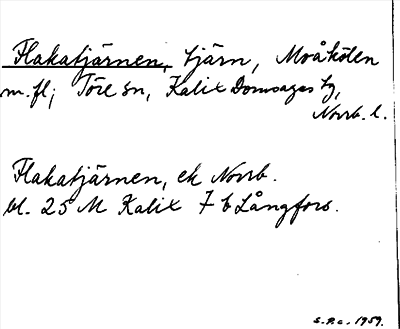 Flakatjärnen, tjärn, Moåkölen
m.fl; Töre sn, Kalix Domsagas tg,
Norrb. l.
Flakatjärnen, ek Norrb.
bl. 25 M Kalix 7 b Långfors.
S.P.C. 1959.